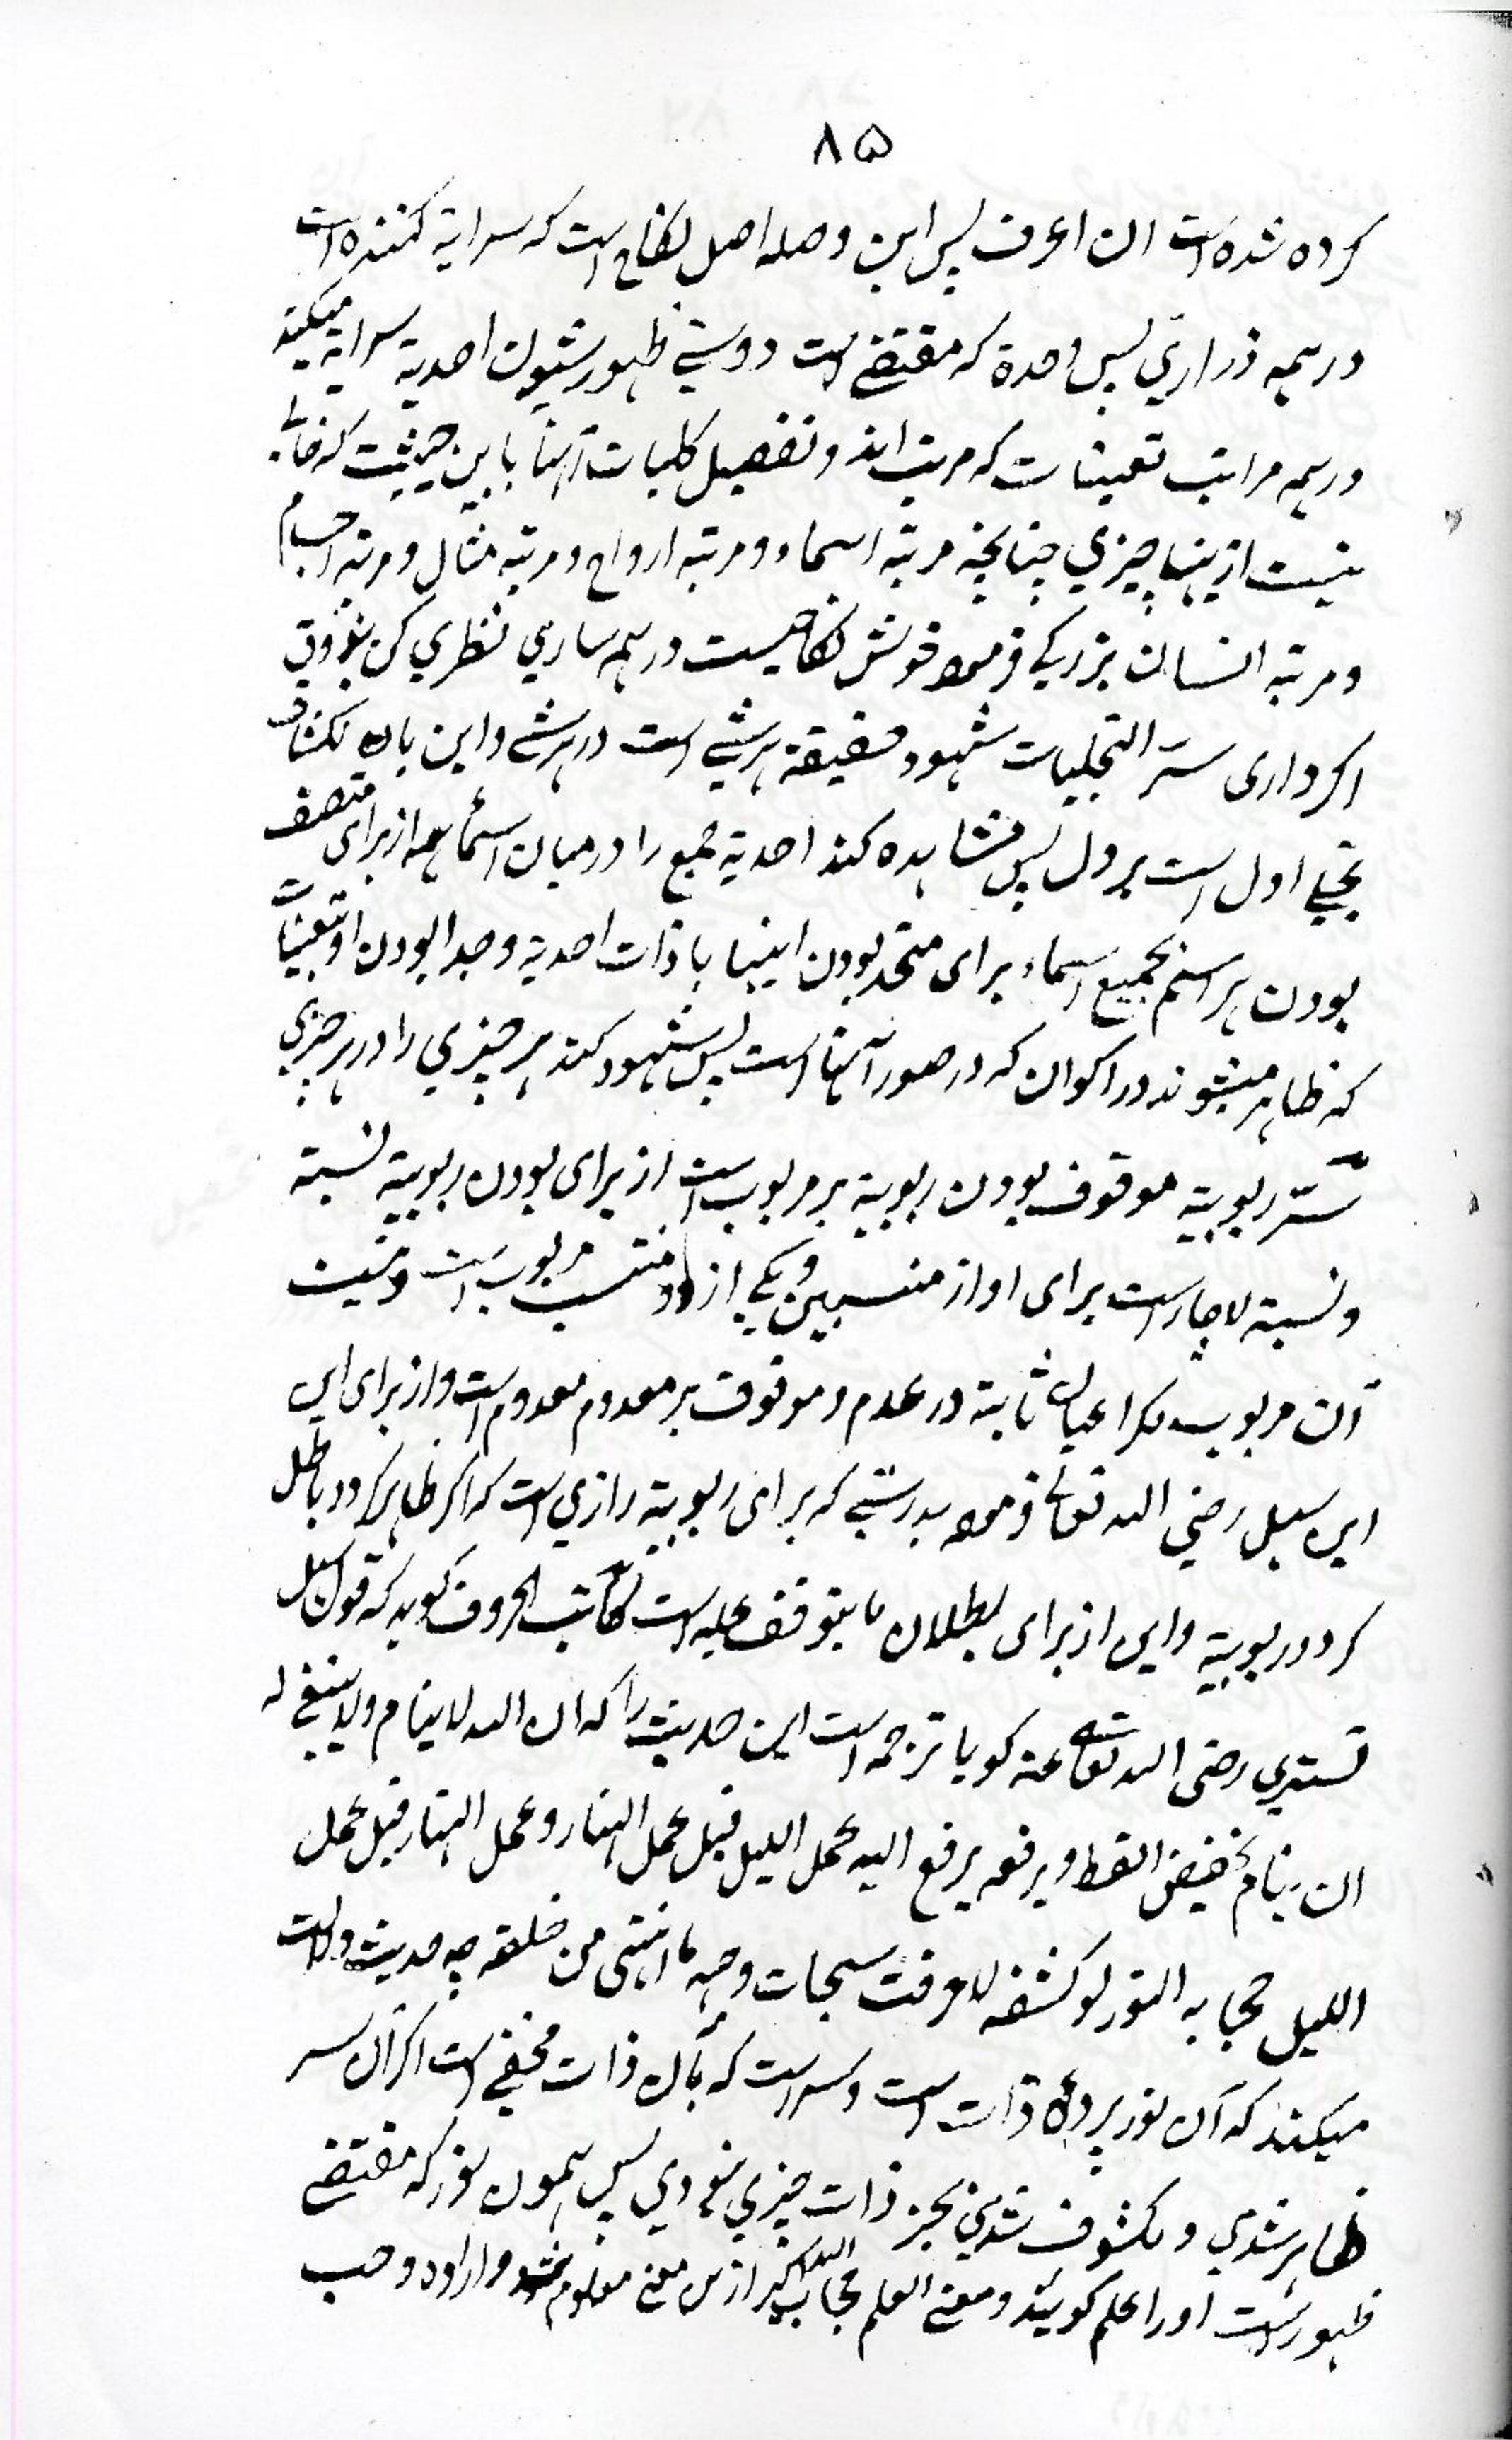 ٨۵
كرده شده است ان اعرف پس این وصله اصل نكاح است كه سرایة كننده است
در همه ذراری پس وحدة كه مقتضی است دوستی ظهور شیون احدیة سرایة میكند
در همه مراتب تعینات كه مرتب اند و تفصیل كلیات آنها باین حیثیت كه خالی
نیست ازینها چیزی چنانچه مرتبه اسماء و مرتبه ارواح و مرتبه مثال و مرتبه اجسام
و مرتبه انسان بزركی فرموده خوش نكاحیست در همه ساری نظری كن بذوق
اكر داری سرّ التجلیات شهود حقیقة هر شی است در هر شی و این باره انكشاف
تجلی اول است بر دل پس مشاهده كند احدیة جمع را در میان اسماء همه از برای متصف
بودن هر اسم بجمیع اسماء برای متحد بودن اینها با ذات احدیة و جدا بودن او بتعینات
كه ظاهر میشوند در اكوان كه در صور آنها است پس شهود كند هر چیزی را در هر چیزی
سرّ ربوبیة موقوف بودن ربوبیة بر مربوب است از برای بودن ربوبیة نسبة
و نسبة لاچار است برای او از منتسبین و یكی از دو منتسب مربوب است و نیست
آن مربوب مكر اعیان ثابته در عدم و موقوف بر معدوم معدوم است و از برای این
این سهل رضی الله تعالی فرموده بدرستی كه برای ربوبیة رازی است كه اكر ظاهر كردد باطل
كردد ربوبیة و این از برای بطلان ما یتوقف علیه است كاتب الحروف كوید كه قول سهل
تستری رضی الله تعالی عنه كویا ترجمه است این حدیث را كه ان الله لا ینام ولا ینبغی له
ان ینام یخفض القسط و یرفعه یرفع الیه عمل اللیل قبل عمل النهار و عمل النهار قبل عمل
اللیل حجابه النور لو كشفه لاحرقت سبحات وجهه ما انتهی من خلقه چه حدیث دلالت
میكند كه آن نور پردهٔ ذات است و سر است كه بآن ذات مخفی است اكر آن سر
ظاهر شدی و مكشوف شدی بجز ذات چیزی نبودی پس همون نور كه مقتضی
ظهور است او را علم كویند و معنی العلم حجاب الله الاكبر ازین معنی معلوم شد و اراده و حب